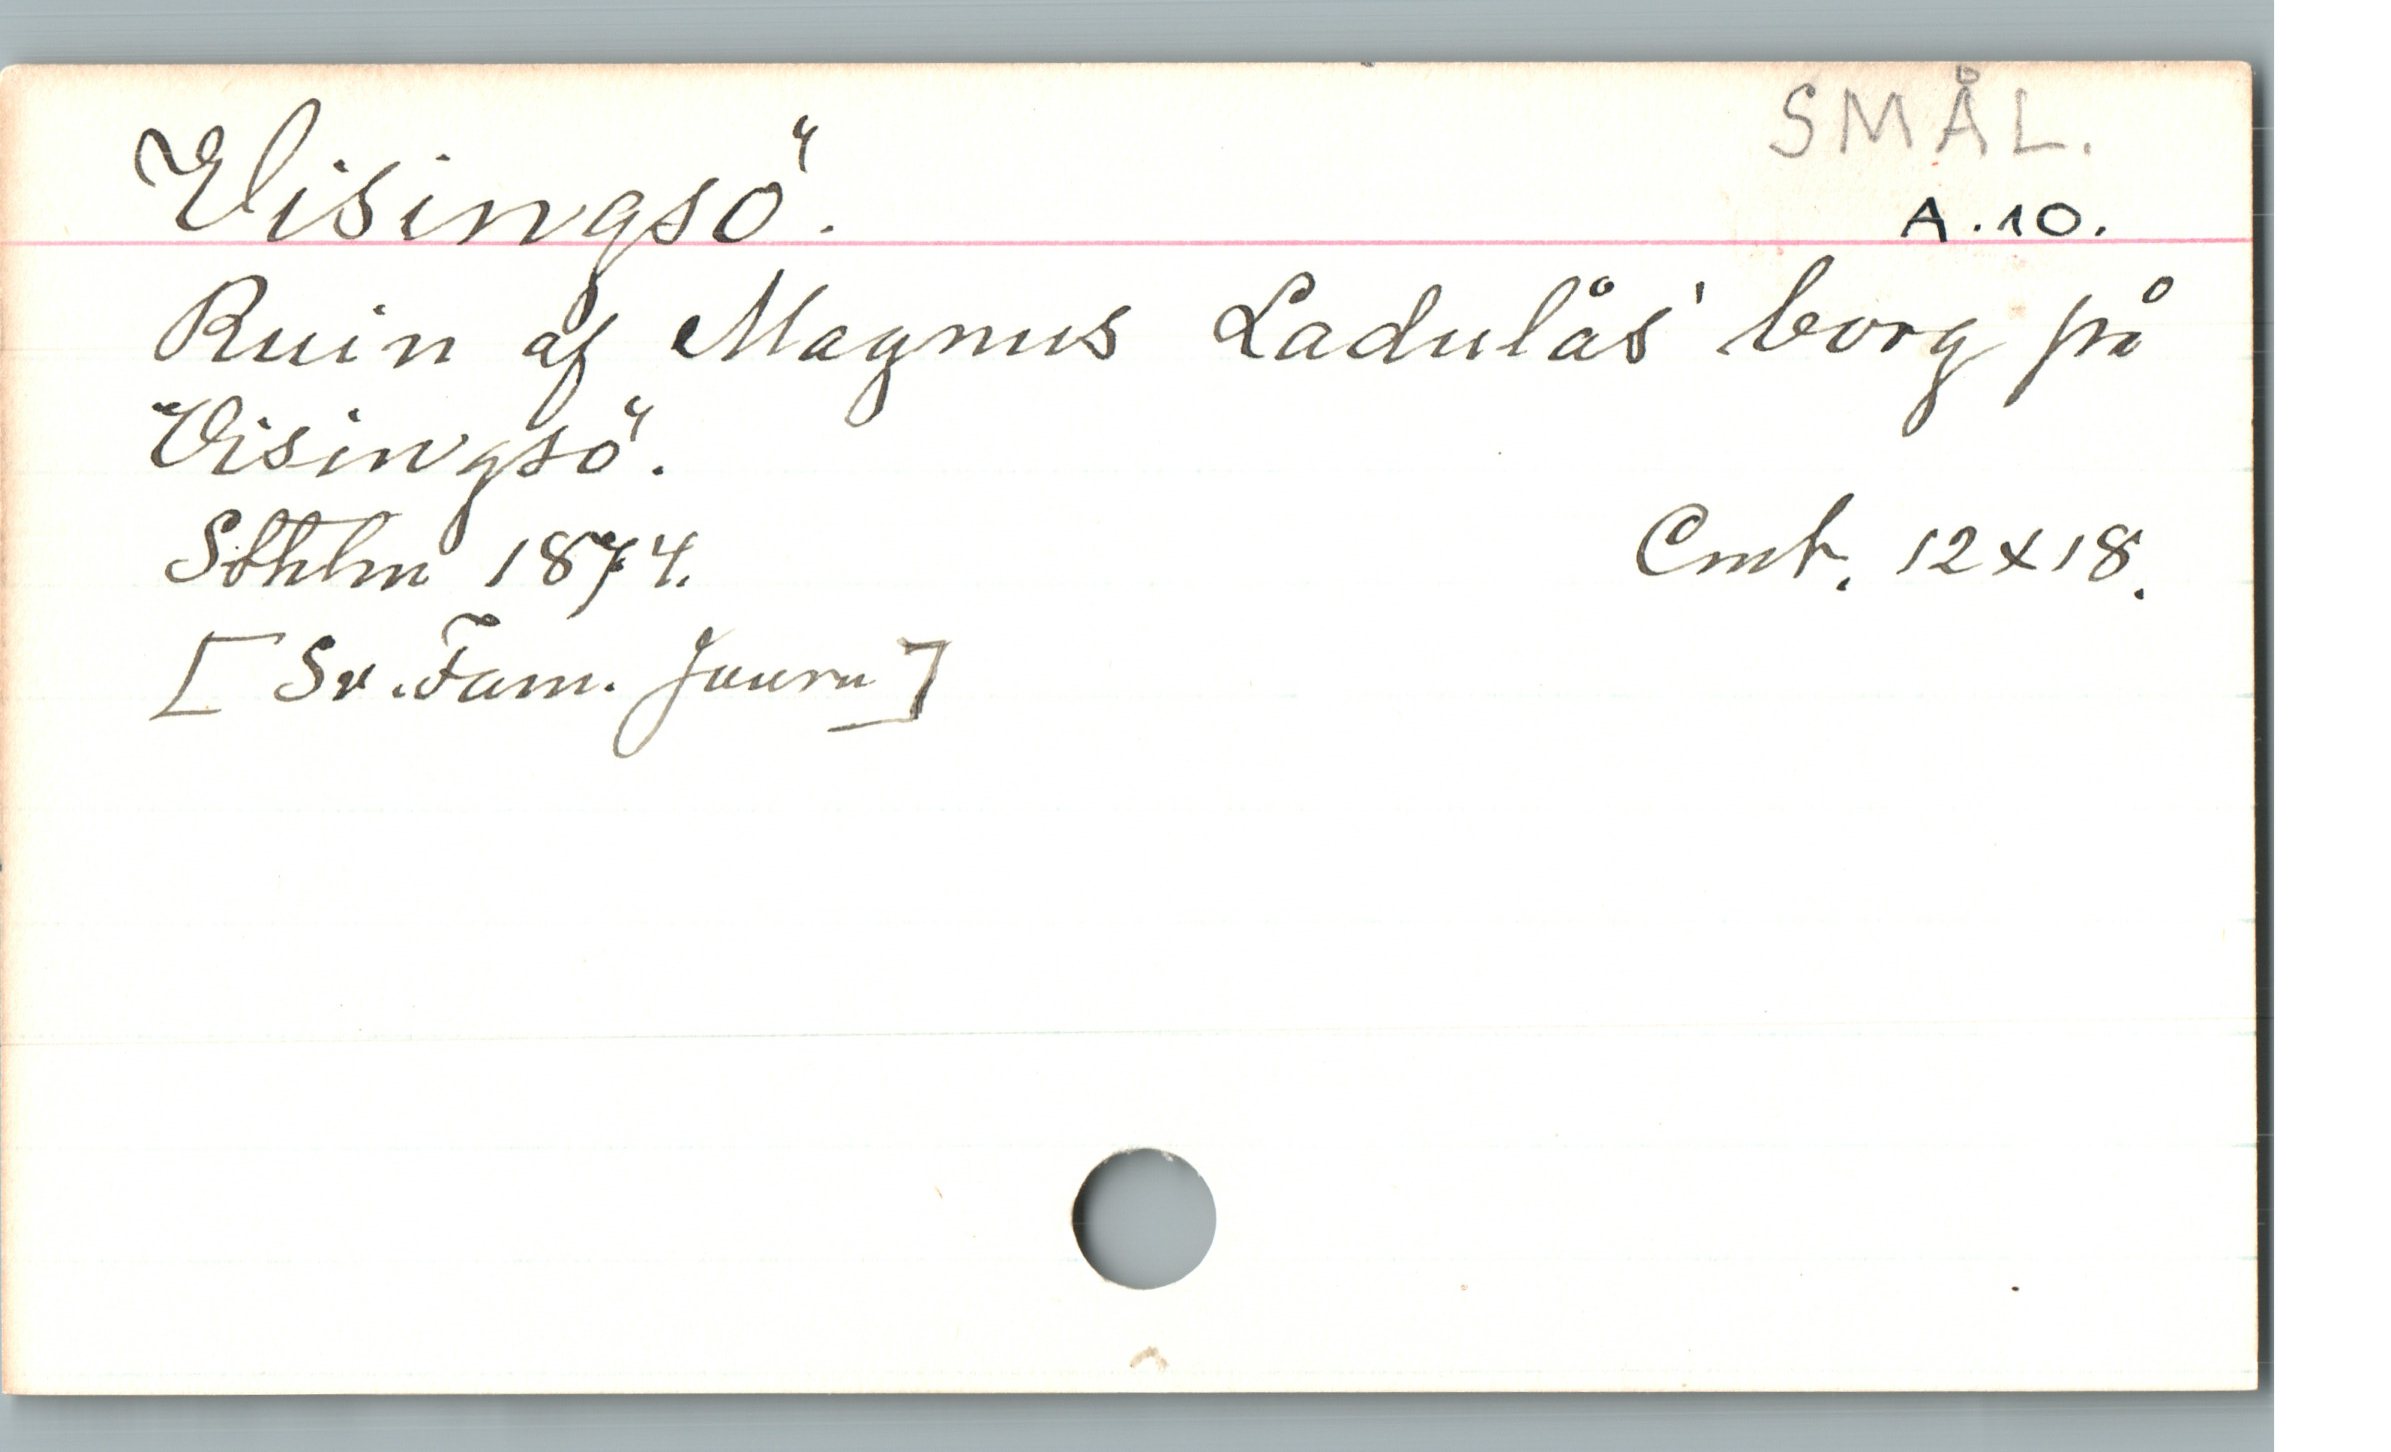 SMÅL.
Visingsö.
A.10.
Ruin af Magnus Ladulås' borg på
Visingsö.
Sthlm 1874. Cmt. 12x18.
[Sv. Fam. Journ]